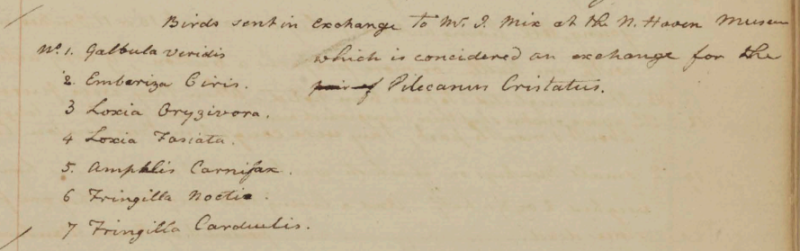 Birds sent in Exchange to Mr. J. Mix at the N. Haven Museu
No. 1. Galbula Viridis which is concidered an exchange for the
2. Emberiza Ciris. pair of Pilecanus Cristatus.
3 Loxia Oryzivora.
4 Loxia Fasiata.
5. Amphlis Carnifax.
6 Fringilla Noctie.
7 Fringilla Carduelis.